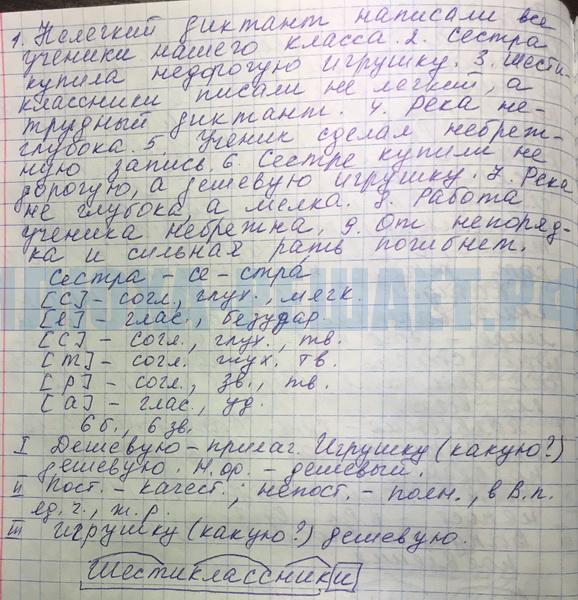 1. Нелегкий диктант написали все
ученики нашего класса. 2. Сестра
купила недорогую игрушку. 3. Шести-
классники писали не легкий, а
трудный диктант. 4. Река не-
глубока. 5. Ученик сделал небреж-
ную запись. 6. Сестре купили не
дорогую, а дешевую игрушку. 7. Река
не глубока, а мелка. 8. Работа
ученика небрежна. 9. От непоряд-
ка и сильная рать погибнет.
Сестра – се – стра
[с] – согл., глух., мягк.
[е] – глас., безудар
[с] – согл., глух., тв.
[т] – согл. глух. тв.
[р] – согл., зв., тв.
[а] – глас., уд.
6 б., 6 зв.
I Дешевую – прилаг. Игрушку (какую?)
дешевую. Н.ф. – дешевый.
II Пост. – качест.; непост. – полн., в В.п.
ед. г., ж. р.
III Игрушку (какую?) дешевую.
Шестиклассники